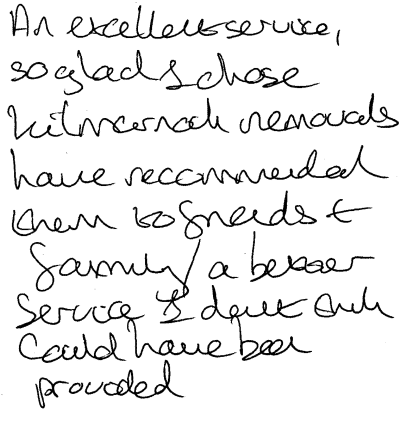 An excellent service,
so glad I chose
Kilmarnock removals
have recommended
them to friends &
family / a better
service I don't think
could have been
provided